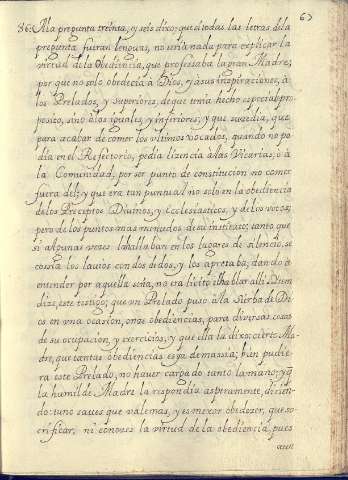 67
36. Ala pregunta treinta, y seis dixo: que si todas las letras dela
pregunta fueran lenguas, no seria nada para explicar la
virtud dela Obediencia, que professaba la gran Madre;
por que no solo obedecia à Dios, y àsus inspiraciones, à
los Prelados, y Superiores, de que tenia hecho especial pro-
posito, sinò à los iguales, y inferiores, y que sucedia, que
para acabar de comer los vltimos vocados, quando no po-
dia en el Refectorio, pedia lizencia àlas Vicarias, ò à
la Comunidad, por ser punto de constitucion no comer
fuera del; y que era tan puntual no solo en la obediencia
delos Preceptos Divinos, y Ecclesiasticos, y delos votos;
pero delos puntos mas menudos de su instituto; tanto que
si algunas vezes la hallaban en los lugares de silencio, se
cossia los lavios con dos dedos, y los apretaba; dando à
entender por aquella seña, no era licito el hablar alli. Y en
dize, este testigo; que vn Prelado puso à la Sierba de Di-
os en vna ocasion, onze obediencias, para diversas cosas
de su ocupacion, y exercicios, y que ella la dixo: cierto Ma-
dre, que tantas obediencias es ya demassia; bien pudie-
ra este Prelado, no haver cargado tanto la mano; y q̃
la humilde Madre la respondiò asperamente, dicien-
do: tuno saves que valemas, y es mexor obedezer, que sa-
crificar, ni conoces la virtud de la obediencia, pues
aun